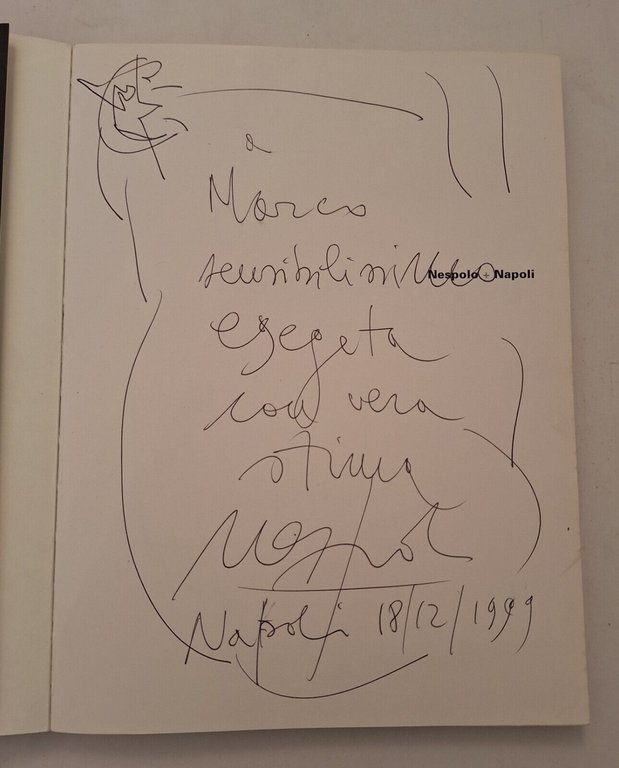 a
Marco
sensibilissimo
Nespolo + Napoli
esegeta
con vera
stima
Nespolo
Napoli 18/12/1999